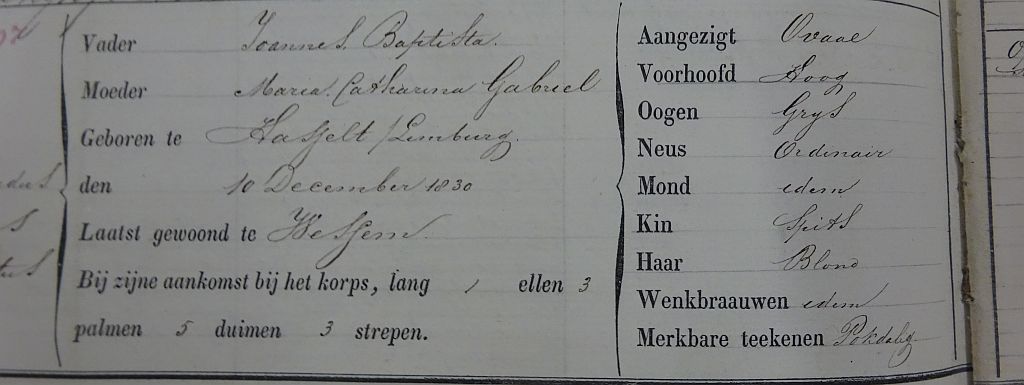 Vader Joannes Baptista.
Moeder Maria Catharina Gabriel
Geboren te Hasselt /Limburg.
den 10 December 1830
Laatst gewoond te Wessem.
Bij zijne aankomst bij het korps, lang 1 ellen 3
palmen 5 duimen 3 strepen.
Aangezigt Ovaal
Voorhoofd Hoog
Oogen Grys
Neus Ordinair
Mond idem
Kin Spits
Haar Blond
Wenkbraauwen idem
Merkbare teekenen Pokdalig